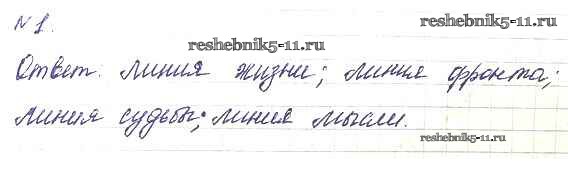 № 1.
reshebnik5-11.ru
reshebnik5-11.ru
Ответ: линия жизни; линия фронта;
линия судьбы; линия мысли.
reshebnik5-11.ru